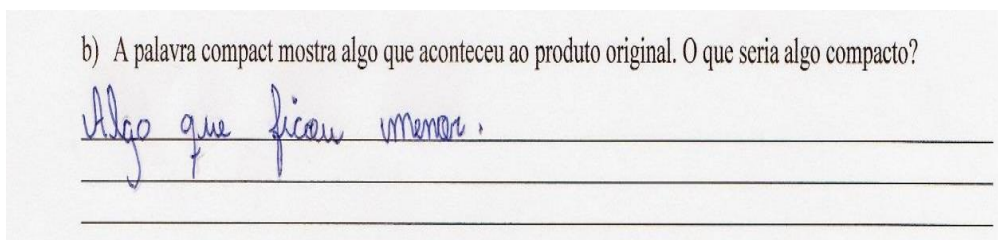 b) A palavra compact mostra algo que aconteceu ao produto original. O que seria algo compacto?
Algo que ficou menor.